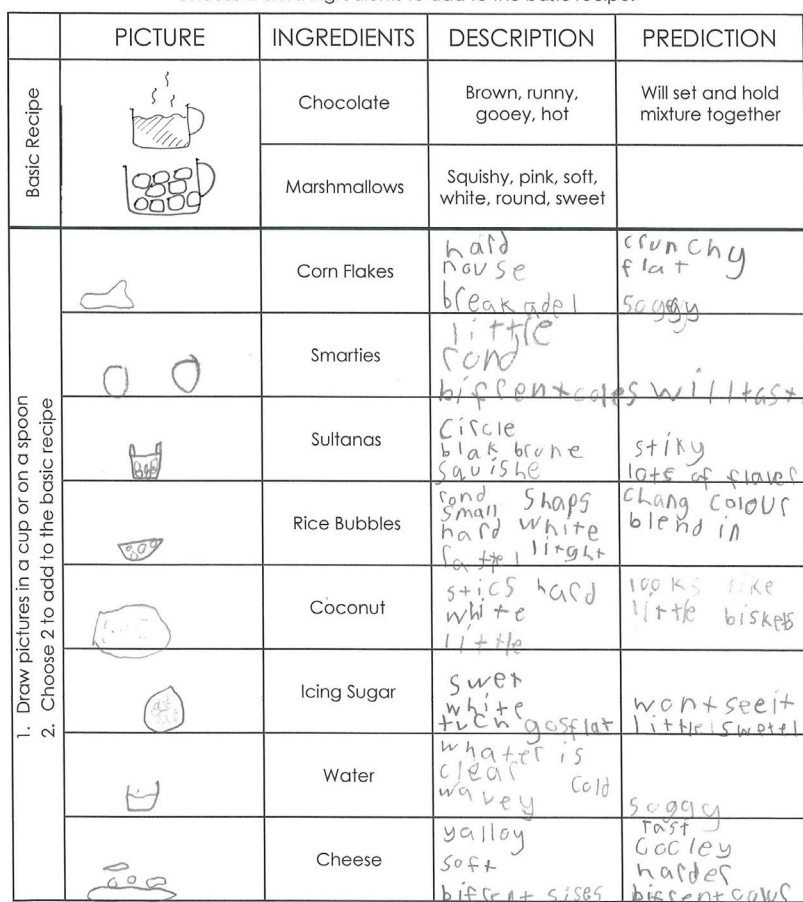 PICTURE INGREDIENTS DESCRIPTION PREDICTION
Basic Recipe
Chocolate
Brown, runny,
gooey, hot
Will set and hold
mixture together
Marshmallows
Squishy, pink, soft,
white, round, sweet
1. Draw pictures in a cup or on a spoon
2. Choose 2 to add to the basic recipe
Corn Flakes
hard
nouse
break adel
crunchy
flat
soggy
Smarties
little
rond
bifrent coles will tast
Sultanas
Circle
blak brune
squishe
stiky
lots of flaver
Rice Bubbles
rond
small shaps
hard white
litght
Chang colour
blend in
Coconut
stics hard
white
little
looks like
little biskets
Icing Sugar
swet
white
tuch gosflat
wont see it
little
Water
whater is
clear
wavey cold
soggy
Cheese
yalloy
soft
bifrent sises
Tast
harder
bifrent colur